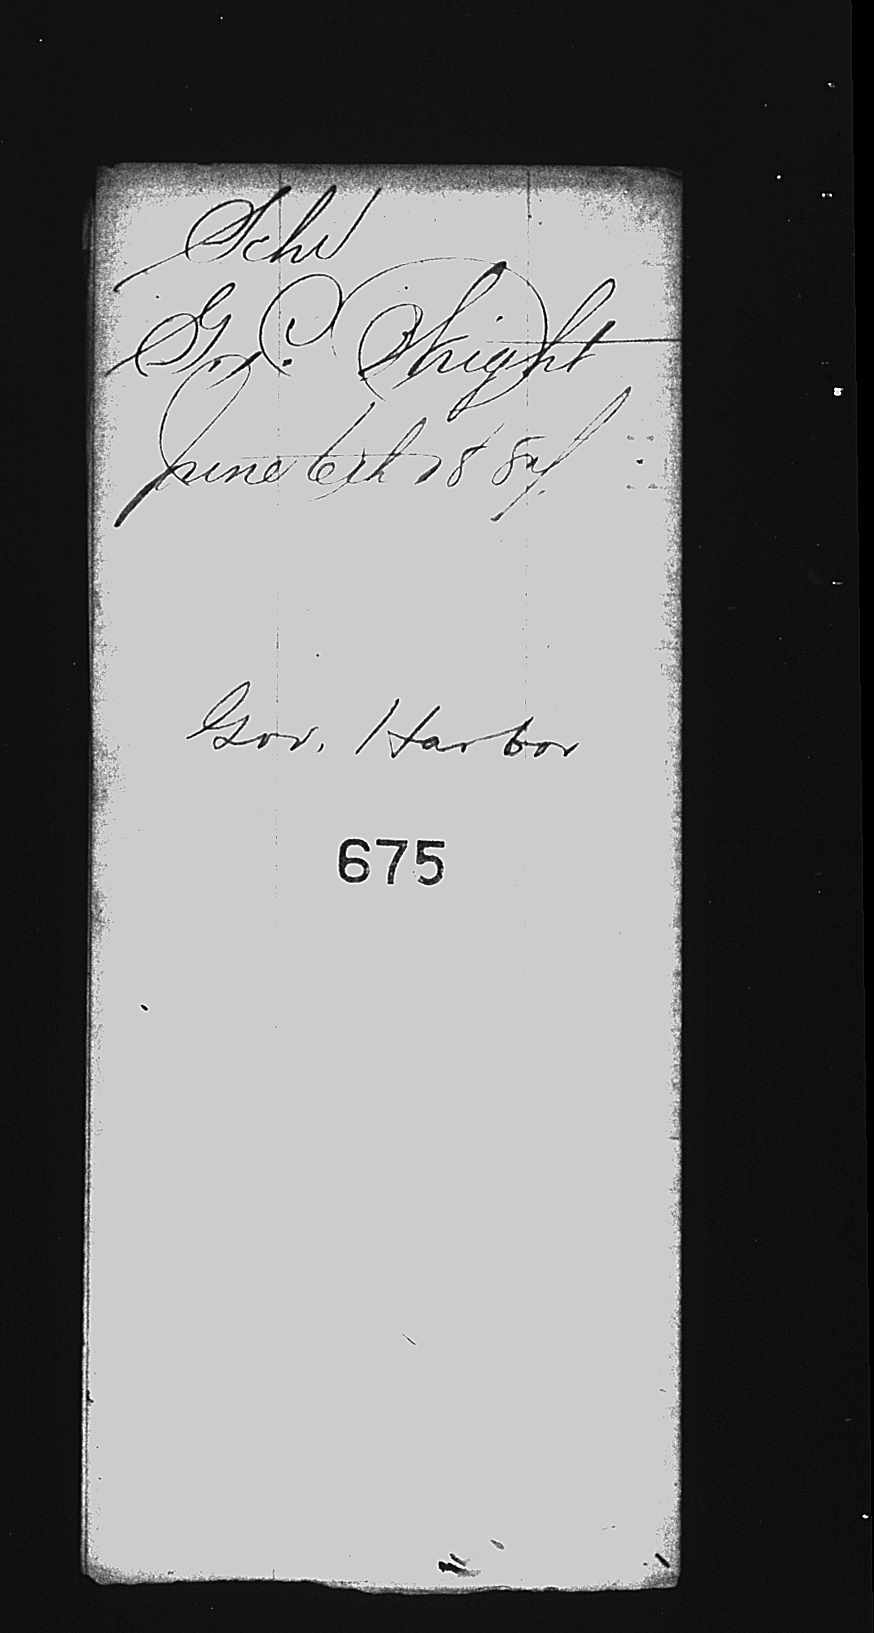 Schr
G. C. Wright
June 6th 1887
Gov. Harbor
675